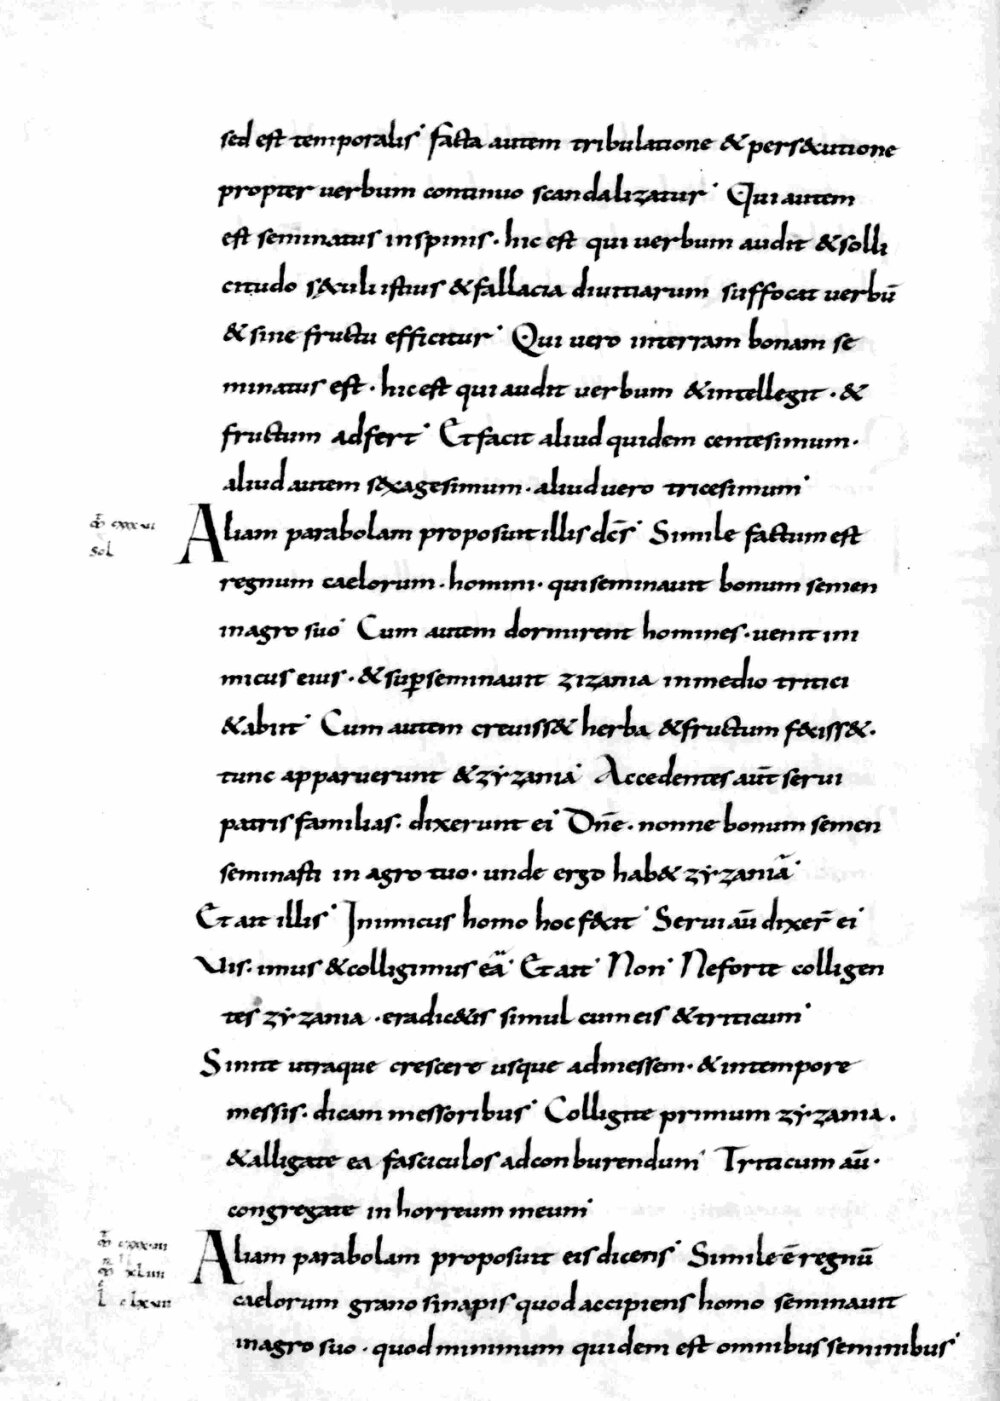 sed est temporalis· facta autem tribulatione & pers&cutione
propter uerbum continuo scandalizatur· Qui autem
est seminatus inspinis· hic est qui uerbum audit &solli
citudo s&culi istius &fallacia diuitiarum suffocat uerbū
&sine fructu efficitur· Qui uero interram bonam se
minatus est· hic est qui audit uerbum &intellegit· &
fructum adfert· Et facit aliud quidem centesimum·
aliud autem sexagesimum· aliud uero tricesimum·
Aliam parabolam proposuit illis dc̄s· Simile factum est
regnum caelorum· homini· qui seminauit bonum semen
inagro suo· Cum autem dormirent homines· uenit ini
micus eius· &suꝑseminauit zizania inmedio tritici
&abiit· Cum autem creuiss& herba &fructum feciss&·
tunc apparuerunt &zẏzania· Accedentes aūt serui
patris familias· dixerunt ei· Dn̄e· nonne bonum semen
seminasti in agro tuo· unde ergo hab& zẏzaniā·
Et ait illis· Inimicus homo hoc fecit· Serui aū dixer̄ ei
Uis· imus &colligimus ea· Et ait· Non· Neforte colligen
tes zẏzania· eradic&is simul cumeis &triticum·
Sinite utraque crescere usque admessem· &intempore
messis· dicam messoribus· Colligite primum zẏzania·
&alligate ea fasciculos adconburendum· Triticum aū·
congregate in horreum meum·
Aliam parabolam proposuit eis dicens· Simile ē regnū
caelorum grano sinapis quod accipiens homo seminauit
inagro suo· quod minimum quidem est omnibus seminibus·